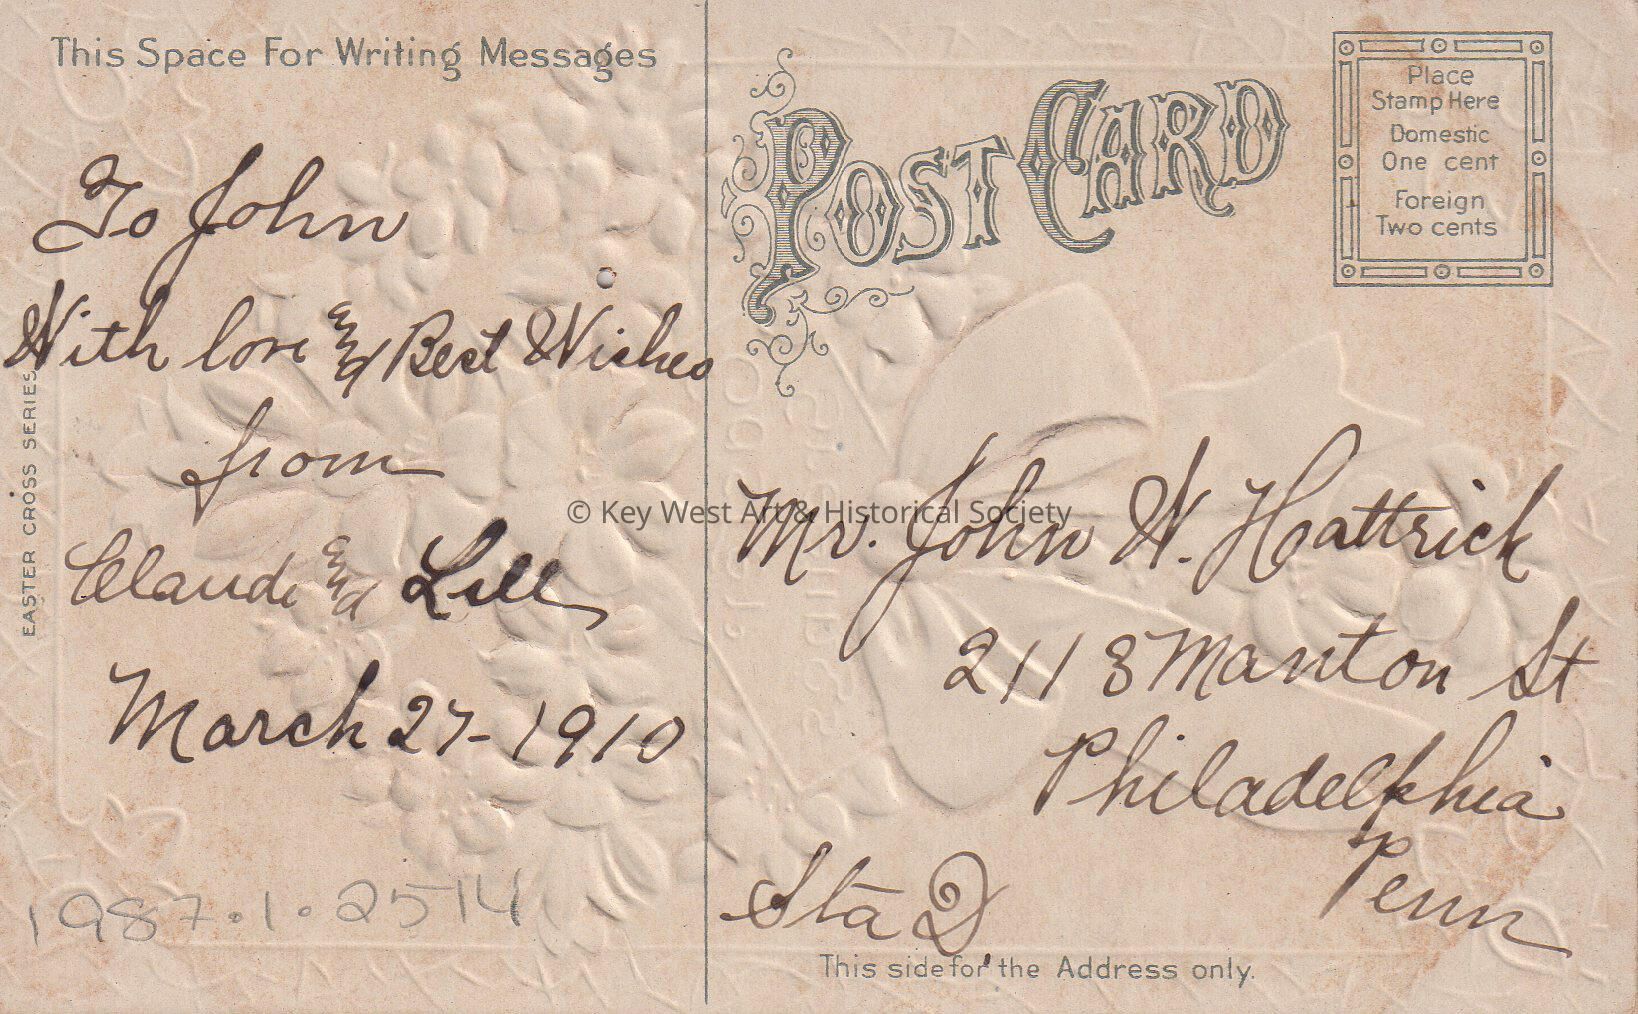 This Space For Writing Messages
To John
With love and Best Wishes
from
Claude and Lill
March 27-1910
1987.1.2514
EASTER CROSS SERIES
POST CARD
Place
Stamp Here
Domestic
One cent
Foreign
Two cents
© Key West Art & Historical Society
Mr. John W. Hattrick
211 Manton St
Philadelphia
Penn
Sta D.
This side for the Address only.